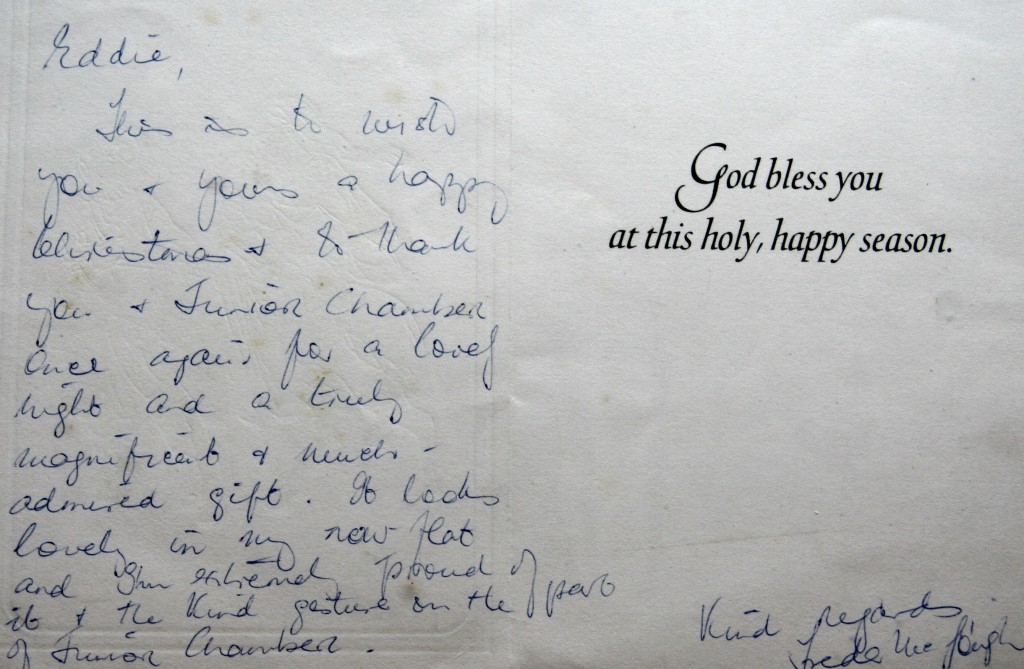 Eddie,
This is to wish
you & yours a happy
Christmas & to thank
you & Junior Chamber
once again for a lovely
night and a truly
magnificent & much-
admired gift. It looks
lovely in my new flat
and I'm extremely proud of
it & the kind gesture on the part
of Junior Chamber.
God bless you
at this holy, happy season.
Kind regards
Freda